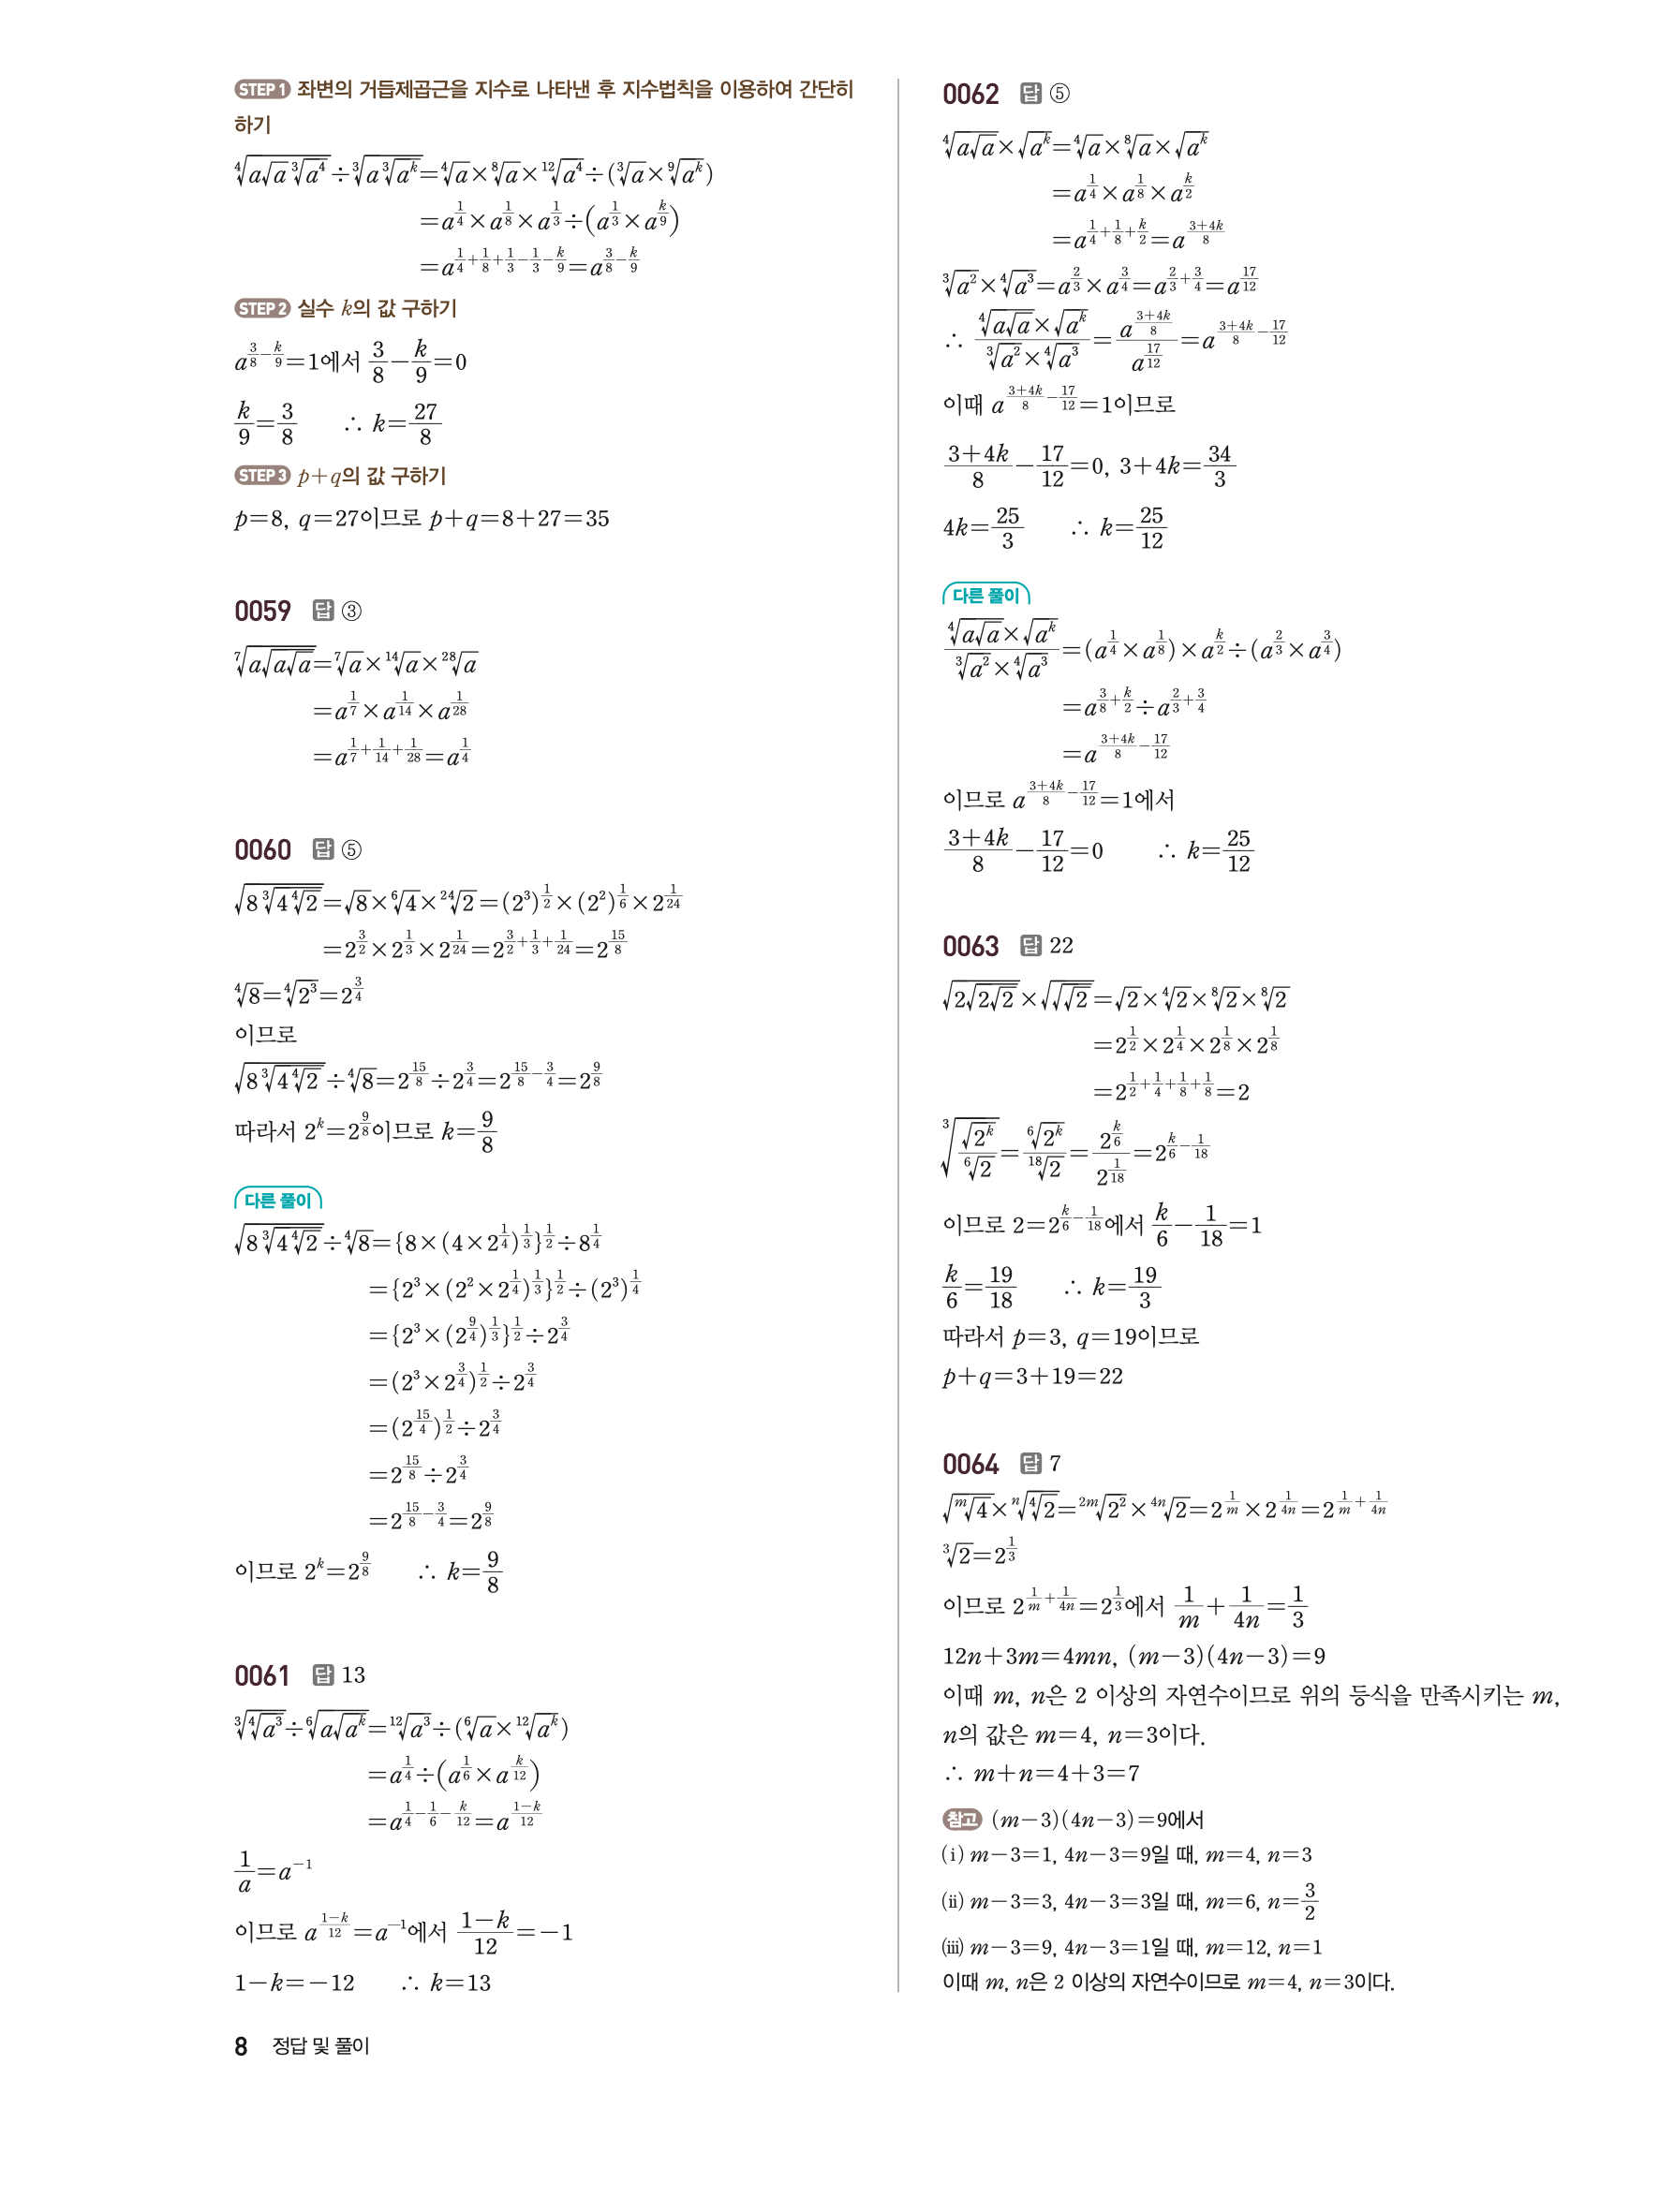 STEP 1 좌변의 거듭제곱근을 지수로 나타낸 후 지수법칙을 이용하여 간단히
하기
$\sqrt[4]{a\sqrt{a}\sqrt[3]{a^4}}\div\sqrt[3]{a\sqrt[3]{a^k}}=\sqrt[4]{a}\times\sqrt[8]{a}\times\sqrt[12]{a^4}\div(\sqrt[3]{a}\times\sqrt[9]{a^k})$
$=a^{\frac{1}{4}}\times a^{\frac{1}{8}}\times a^{\frac{1}{3}}\div\left(a^{\frac{1}{3}}\times a^{\frac{k}{9}}\right)$
$=a^{\frac{1}{4}+\frac{1}{8}+\frac{1}{3}-\frac{1}{3}-\frac{k}{9}}=a^{\frac{3}{8}-\frac{k}{9}}$
STEP 2 실수 k의 값 구하기
$a^{\frac{3}{8}-\frac{k}{9}}=1$에서 $\frac{3}{8}-\frac{k}{9}=0$
$\frac{k}{9}=\frac{3}{8}$ ∴ $k=\frac{27}{8}$
STEP 3 p+q의 값 구하기
p=8, q=27이므로 p+q=8+27=35
0059 답 ③
$\sqrt[7]{a\sqrt{a\sqrt{a}}}=\sqrt[7]{a}\times\sqrt[14]{a}\times\sqrt[28]{a}$
$=a^{\frac{1}{7}}\times a^{\frac{1}{14}}\times a^{\frac{1}{28}}$
$=a^{\frac{1}{7}+\frac{1}{14}+\frac{1}{28}}=a^{\frac{1}{4}}$
0060 답 ⑤
$\sqrt{8\sqrt[3]{4\sqrt[4]{2}}}=\sqrt{8}\times\sqrt[6]{4}\times\sqrt[24]{2}=(2^3)^{\frac{1}{2}}\times(2^2)^{\frac{1}{6}}\times2^{\frac{1}{24}}$
$=2^{\frac{3}{2}}\times2^{\frac{1}{3}}\times2^{\frac{1}{24}}=2^{\frac{3}{2}+\frac{1}{3}+\frac{1}{24}}=2^{\frac{15}{8}}$
$\sqrt[4]{8}=\sqrt[4]{2^3}=2^{\frac{3}{4}}$
이므로
$\sqrt{8\sqrt[3]{4\sqrt[4]{2}}}\div\sqrt[4]{8}=2^{\frac{15}{8}}\div2^{\frac{3}{4}}=2^{\frac{15}{8}-\frac{3}{4}}=2^{\frac{9}{8}}$
따라서 $2^k=2^{\frac{9}{8}}$이므로 $k=\frac{9}{8}$
다른 풀이
$\sqrt{8\sqrt[3]{4\sqrt[4]{2}}}\div\sqrt[4]{8}=\{8\times(4\times2^{\frac{1}{4}})^{\frac{1}{3}}\}^{\frac{1}{2}}\div8^{\frac{1}{4}}$
$=\{2^3\times(2^2\times2^{\frac{1}{4}})^{\frac{1}{3}}\}^{\frac{1}{2}}\div(2^3)^{\frac{1}{4}}$
$=\{2^3\times(2^{\frac{9}{4}})^{\frac{1}{3}}\}^{\frac{1}{2}}\div2^{\frac{3}{4}}$
$=(2^3\times2^{\frac{3}{4}})^{\frac{1}{2}}\div2^{\frac{3}{4}}$
$=(2^{\frac{15}{4}})^{\frac{1}{2}}\div2^{\frac{3}{4}}$
$=2^{\frac{15}{8}}\div2^{\frac{3}{4}}$
$=2^{\frac{15}{8}-\frac{3}{4}}=2^{\frac{9}{8}}$
이므로 $2^k=2^{\frac{9}{8}}$ ∴ $k=\frac{9}{8}$
0061 답 13
$\sqrt[3]{\sqrt[4]{a^3}}\div\sqrt[6]{a\sqrt{a^k}}=\sqrt[12]{a^3}\div(\sqrt[6]{a}\times\sqrt[12]{a^k})$
$=a^{\frac{1}{4}}\div\left(a^{\frac{1}{6}}\times a^{\frac{k}{12}}\right)$
$=a^{\frac{1}{4}-\frac{1}{6}-\frac{k}{12}}=a^{\frac{1-k}{12}}$
$\frac{1}{a}=a^{-1}$
이므로 $a^{\frac{1-k}{12}}=a^{-1}$에서 $\frac{1-k}{12}=-1$
1-k=-12 ∴ k=13
8 정답 및 풀이
0062 답 ⑤
$\sqrt[4]{a\sqrt{a}}\times\sqrt{a^k}=\sqrt[4]{a}\times\sqrt[8]{a}\times\sqrt{a^k}$
$=a^{\frac{1}{4}}\times a^{\frac{1}{8}}\times a^{\frac{k}{2}}$
$=a^{\frac{1}{4}+\frac{1}{8}+\frac{k}{2}}=a^{\frac{3+4k}{8}}$
$\sqrt[3]{a^2}\times\sqrt[4]{a^3}=a^{\frac{2}{3}}\times a^{\frac{3}{4}}=a^{\frac{2}{3}+\frac{3}{4}}=a^{\frac{17}{12}}$
∴ $\frac{\sqrt[4]{a\sqrt{a}}\times\sqrt{a^k}}{\sqrt[3]{a^2}\times\sqrt[4]{a^3}}=\frac{a^{\frac{3+4k}{8}}}{a^{\frac{17}{12}}}=a^{\frac{3+4k}{8}-\frac{17}{12}}$
이때 $a^{\frac{3+4k}{8}-\frac{17}{12}}=1$이므로
$\frac{3+4k}{8}-\frac{17}{12}=0$, $3+4k=\frac{34}{3}$
$4k=\frac{25}{3}$ ∴ $k=\frac{25}{12}$
다른 풀이
$\frac{\sqrt[4]{a\sqrt{a}}\times\sqrt{a^k}}{\sqrt[3]{a^2}\times\sqrt[4]{a^3}}=(a^{\frac{1}{4}}\times a^{\frac{1}{8}})\times a^{\frac{k}{2}}\div(a^{\frac{2}{3}}\times a^{\frac{3}{4}})$
$=a^{\frac{3}{8}+\frac{k}{2}}\div a^{\frac{2}{3}+\frac{3}{4}}$
$=a^{\frac{3+4k}{8}-\frac{17}{12}}$
이므로 $a^{\frac{3+4k}{8}-\frac{17}{12}}=1$에서
$\frac{3+4k}{8}-\frac{17}{12}=0$ ∴ $k=\frac{25}{12}$
0063 답 22
$\sqrt{2\sqrt{2\sqrt{2}}}\times\sqrt{\sqrt{\sqrt{2}}}=\sqrt{2}\times\sqrt[4]{2}\times\sqrt[8]{2}\times\sqrt[8]{2}$
$=2^{\frac{1}{2}}\times2^{\frac{1}{4}}\times2^{\frac{1}{8}}\times2^{\frac{1}{8}}$
$=2^{\frac{1}{2}+\frac{1}{4}+\frac{1}{8}+\frac{1}{8}}=2$
$\sqrt[3]{\frac{\sqrt{2^k}}{\sqrt[6]{2}}}=\frac{\sqrt[6]{2^k}}{\sqrt[18]{2}}=\frac{2^{\frac{k}{6}}}{2^{\frac{1}{18}}}=2^{\frac{k}{6}-\frac{1}{18}}$
이므로 $2=2^{\frac{k}{6}-\frac{1}{18}}$에서 $\frac{k}{6}-\frac{1}{18}=1$
$\frac{k}{6}=\frac{19}{18}$ ∴ $k=\frac{19}{3}$
따라서 p=3, q=19이므로
p+q=3+19=22
0064 답 7
$\sqrt{\sqrt[m]{4}}\times\sqrt[n]{\sqrt[4]{2}}=\sqrt[2m]{2^2}\times\sqrt[4n]{2}=2^{\frac{1}{m}}\times2^{\frac{1}{4n}}=2^{\frac{1}{m}+\frac{1}{4n}}$
$\sqrt[3]{2}=2^{\frac{1}{3}}$
이므로 $2^{\frac{1}{m}+\frac{1}{4n}}=2^{\frac{1}{3}}$에서 $\frac{1}{m}+\frac{1}{4n}=\frac{1}{3}$
12n+3m=4mn, (m-3)(4n-3)=9
이때 m, n은 2 이상의 자연수이므로 위의 등식을 만족시키는 m,
n의 값은 m=4, n=3이다.
∴ m+n=4+3=7
참고 (m-3)(4n-3)=9에서
(ⅰ) m-3=1, 4n-3=9일 때, m=4, n=3
(ⅱ) m-3=3, 4n-3=3일 때, m=6, $n=\frac{3}{2}$
(ⅲ) m-3=9, 4n-3=1일 때, m=12, n=1
이때 m, n은 2 이상의 자연수이므로 m=4, n=3이다.